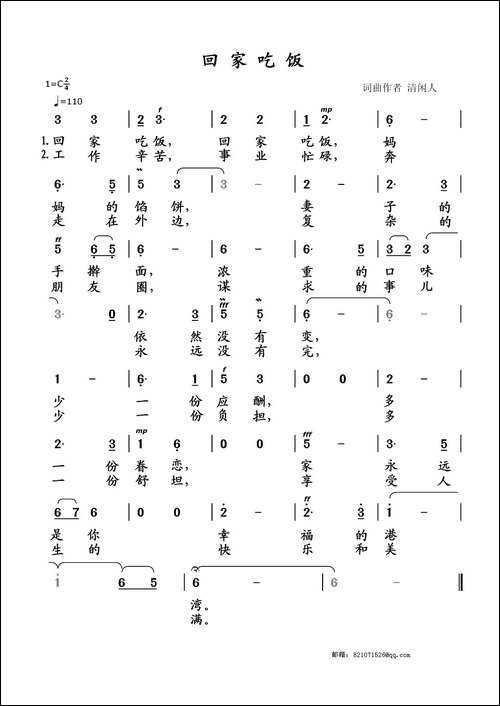 回家吃饭
1=C2/4
♩=110
词曲作者 清闲人
3 3 | 2 3· | 2 2 | 1 2· | 6 - |
1.回 家 吃 饭, 回 家 吃 饭, 妈
2.工 作 辛 苦, 事 业 忙 碌, 奔
6· 5 | 5 3 | 3 - | 2 - | 2· 3 |
妈 的 馅 饼, 妻 子 的
走 在 外 边, 复 杂 的
ff
5 6 5 | 6 - | 6 - | 6· 5 | 3 2 3 |
手 擀 面, 浓 重 的 口 味
朋 友 圈, 谋 求 的 事 儿
fff
3· 0 | 2· 3 | 5 5 | 6 - | 6 - |
依 然 没 有 变,
永 远 没 有 完,
1 - | 6· 1 | 5 3 | 0 0 | 2 - |
少 一 份 应 酬, 多
少 一 份 负 担, 多
mp fff
2· 3 | 1 6 | 0 0 | 5 - | 3 5 |
一 份 眷 恋, 家 永 远
一 份 舒 坦, 享 受 人
ff
6 7 6 | 0 0 | 2 - | 2· 3 | 1 - |
是 你 幸 福 的 港
生 的 快 乐 和 美
1 6 5 | 6 - | 6 - ‖
湾。
满。
邮箱：821071526@qq.com